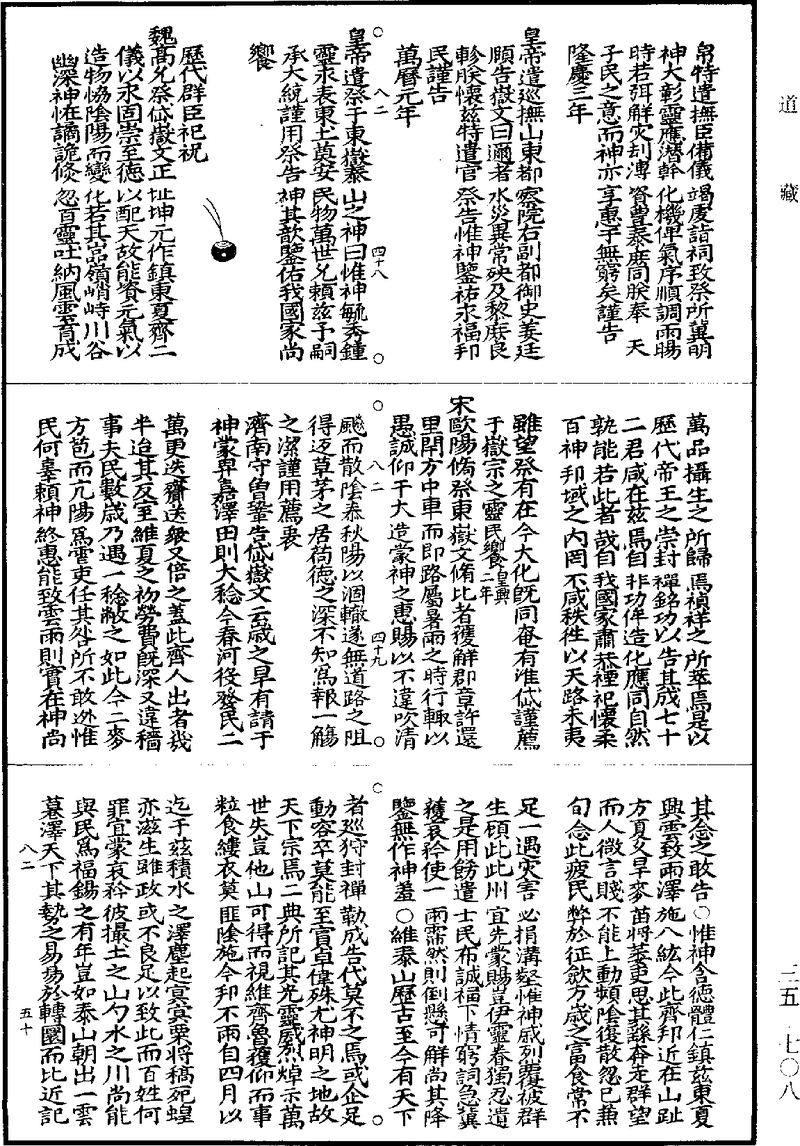 道藏
三五·七〇八
帛特遣撫臣備儀竭虔詣祠致祭所冀明
神大彰靈應潛幹化機俾氣序順調雨暘
時若弭解灾剨溥資豊泰庶同朕奉天
子民之意而神亦享惠于無窮矣謹告
隆慶三年
皇帝遣巡撫山東都察院右副都御史姜廷
頤告嶽文曰邇者水災異常殃及黎庶良
軫朕懷茲特遣官祭告惟神鑒祐永福邦
民謹告
萬曆元年
皇帝遣祭于東嶽泰山之神曰惟神毓秀鍾
靈永表東土奠安民物萬世允賴茲予嗣
承大統謹用祭告神其歆鑒佑我國家尚
饗
八二
四十八
歷代群臣祀祝
魏高允祭岱嶽文正址坤元作鎮東夏齊二
儀以永固崇至德以配天故能資元氣以
造物恊陰陽而變化若其嵓嶺峭峙川谷
幽深神恠譎詭倏忽百靈吐納風雲育成
萬品攝生之所歸焉禎祥之所萃焉是以
歷代帝王之崇封禪銘功以告其成七十
二君咸在茲焉自非功侔造化應同自然
孰能若此者哉自我國家肅恭禋祀懷柔
百神邦域之內罔不咸秩徃以天路未夷
雖望祭有在今大化旣同奄有淮岱謹薦
于嶽宗之靈民饗皇興二年
宋歐陽脩祭東嶽文脩比者獲解郡章許還
里閈方中車而即路屬暑雨之時行輙以
愚誠仰干大造蒙神之惠賜以不違吹清
飈而散陰泰秋陽以涸轍遂無道路之阻
得返草茅之居荷德之深不知爲報一觴
之潔謹用薦衷
八二
四十九
濟南守曾鞏告岱嶽文去歲之旱有請于
神蒙畀嘉澤田則大稔今春河役發民二
萬更迭齎送縱又倍之蓋此齊人出者幾
半迨其反室維夏之初勞費旣深又違穡
事夫民數歲乃遇一稔敝之如此今二麥
方苞而亢陽爲沴吏任其咎所不敢逃惟
民何辜頼神終惠能致雲雨則實在神尚
其念之敢告〇惟神含德體仁鎮茲東夏
興雲致雨澤施八紘今此齊邦近在山趾
方夏又旱麥苗將萎吏思其繇奔走群望
而人微言賤不能上動頻陰復散忽已兼
旬念此疲民弊於征歛方歲之富食常不
足一遇灾害必捐溝壑惟神威列覆被群
生頋此此州宜先蒙賜豈伊靈眷獨忍遺
之是用餝遣士民布誠福下情窮詞急冀
獲哀矜使一雨霈然則倒懸可解尚其降
鑒無作神羞〇維泰山歷古至今有天下
者巡狩封禪勤成告代莫不之焉或企足
動容卒莫能至實卓偉殊尤神明之地故
天下宗焉二典所記其光靈威烈焯示萬
世失豈他山可得而視維齊魯獲仰而事
粒食縷衣莫匪陰施今邦不雨自四月以
迄于茲積水之澤塵起冥冥粟將槁死蝗
亦滋生雖政或不良足以致此而百姓何
罪宜蒙哀矜彼撮土之山勺水之川尚能
與民爲福錫之有年豈如泰山朝出一雲
暮澤天下其勢之易昜於轉圜而比近記
八二
五十